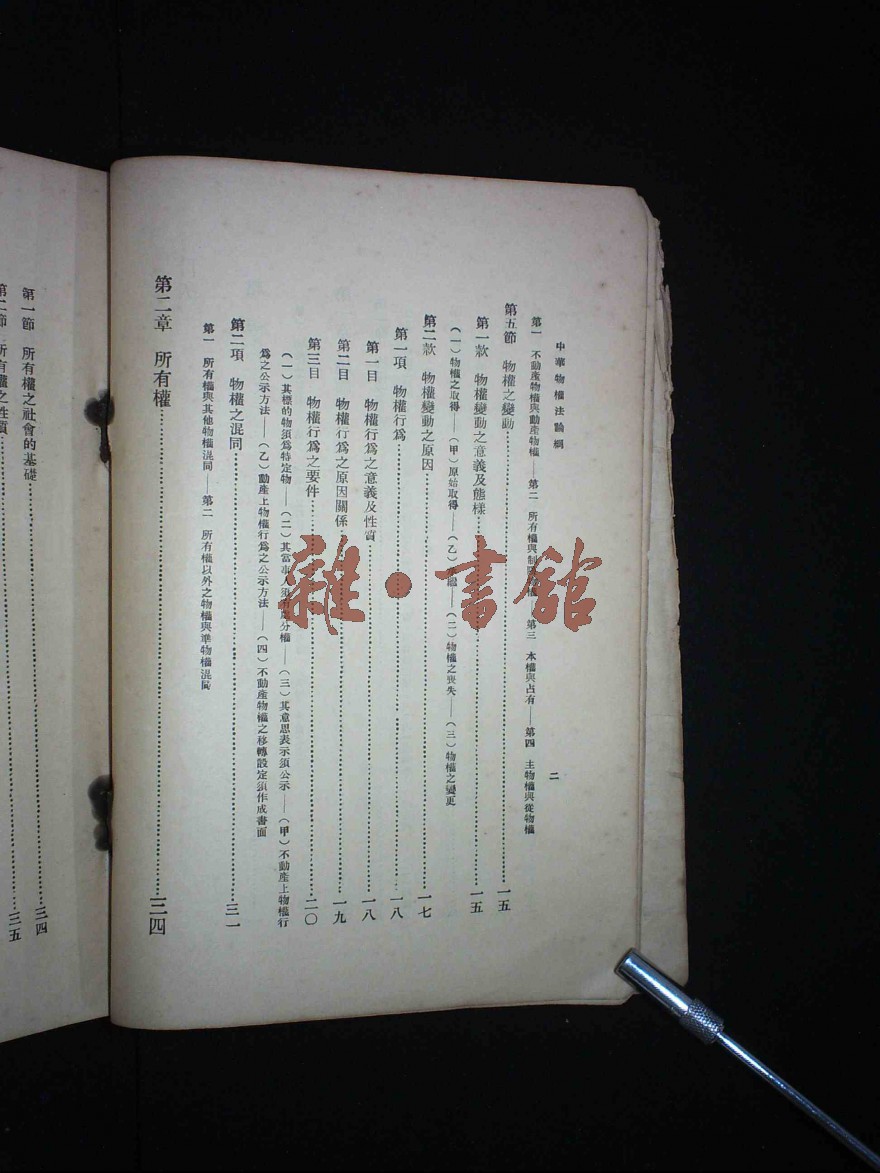 中華物權法論綱
二
第一 不動產物權與動產物權——第二 所有權與制限物權——第三 本權與占有——第四 主物權與從物權
第五節 物權之變動……一五
第一款 物權變動之意義及態樣……一五
(一)物權之取得——(甲)原始取得——(乙)——(二)物權之喪失——(三)物權之變更
第二款 物權變動之原因……一七
第一項 物權行爲……一八
第一目 物權行爲之意義及性質……一八
第二目 物權行爲之原因關係……一九
第三目 物權行爲之要件……二〇
(一)其標的物須爲特定物——(二)其當事人須有處分權——(三)其意思表示須公示——(甲)不動產上物權行
爲之公示方法——(乙)動產上物權行爲之公示方法——(四)不動產物權之移轉設定須作成書面
第二項 物權之混同……三一
第一 所有權與其他物權混同——第二 所有權以外之物權與準物權混同
第二章 所有權……三四
第一節 所有權之社會的基礎……三四
第二節 所有權之性質……三五
雜·書館